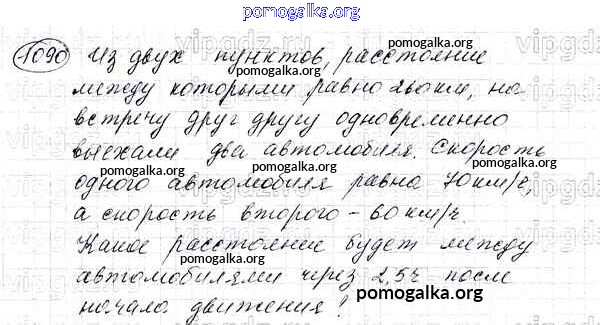 pomogalka.org
1090 Из двух пунктов, расстояние
pomogalka.org
между которыми равно 260 км, на-
встречу друг другу одновременно
pomogalka.org
выехали два автомобиля. Скорость
pomogalka.org
одного автомобиля равна 70 км/ч,
pomogalka.org
а скорость второго – 60 км/ч.
pomogalka.org
Какое расстояние будет между
pomogalka.org
автомобилями через 2,5ч после
pomogalka.org
начала движения?
pomogalka.org